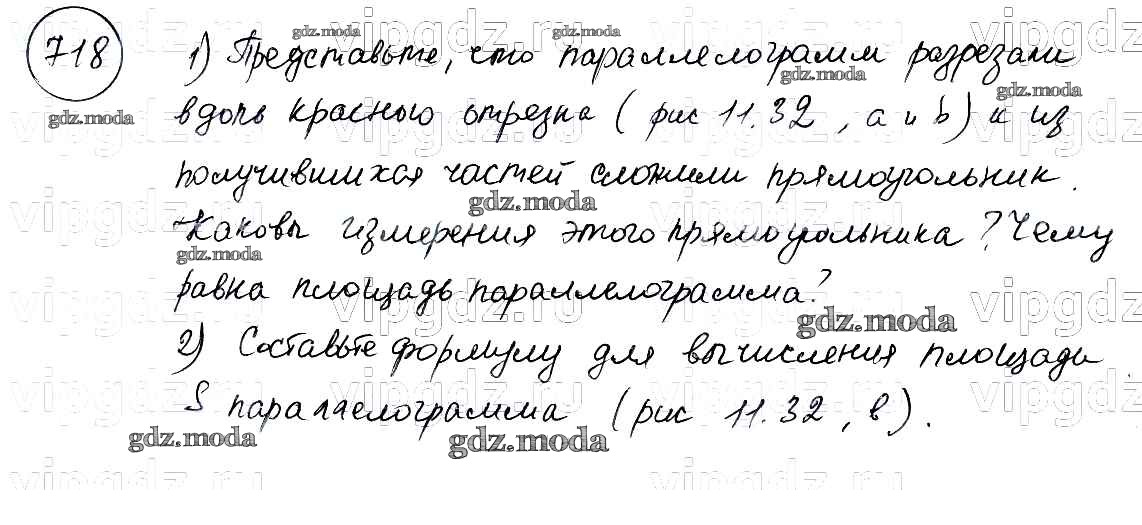 718
1) Представьте, что параллелограмм разрезали
вдоль красного отрезка (рис 11.32, а и b) и из
получившихся частей сложили прямоугольник.
Каковы измерения этого прямоугольника? Чему
равна площадь параллелограмма?
2) Составьте формулу для вычисления площади
S параллелограмма (рис 11.32, в).
gdz.moda
vipgdz.ru